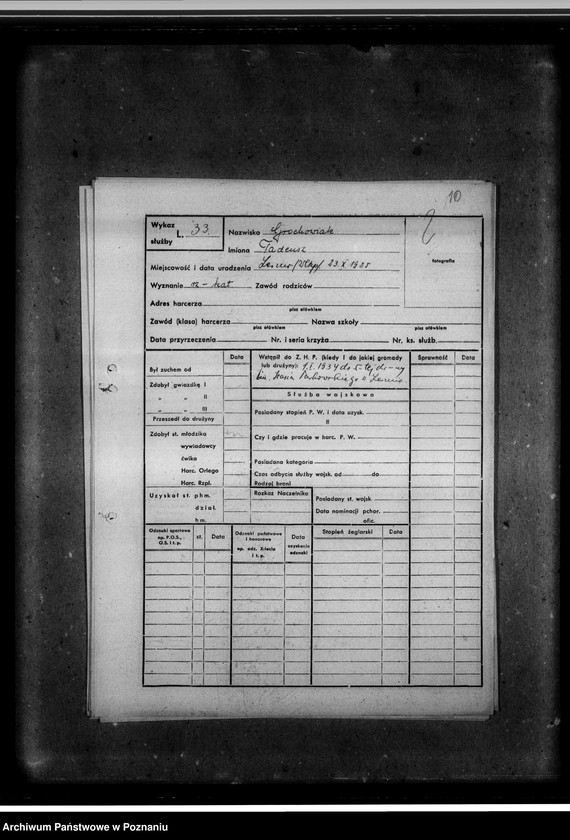 10
Wykaz L. 33
służby
Nazwisko Grochowiak
Imiona Tadeusz
fotografia
Miejscowość i data urodzenia Leszno/Wlkp/ 23.X 1925
Wyznanie rz-kat Zawód rodziców
Adres harcerza
pisz ołówkiem
Zawód (klasa) harcerza Nazwa szkoły
pisz ołówkiem pisz ołówkiem
Data przyrzeczenia Nr. i seria krzyża Nr. ks. służb.
Data
Był zuchem od
Zdobył gwiazdkę I
„ „ II
„ „ III
Przeszedł do drużyny
Zdobył st. młodzika
wywiadowcy
ćwika
Harc. Orlego
Harc. Rzpl.
Uzyskał st. phm.
dział.
hm.
Wstąpił do Z. H. P. (kiedy i do jakiej gromady
lub drużyny): 1.I. 1934 do
im.
Służba wojskowa
Posiadany stopień P. W. i data uzysk.
II
Czy i gdzie pracuje w harc. P. W.
Posiadana kategoria
Czas odbycia służby wojsk. od do
Rodzaj broni
Rozkaz Naczelnika
Posiadany st. wojsk
Data nominacji pchor.
ofic.
Sprawność Data
Odznaki sportowe
np. P.O.S.,
O.S. i t. p.
st. Data
Odznaki państwowe
i honorowe
np. odz. Zrzeciu
i t. p.
Data
uzyskania
odznaki
Stopień żeglarski Data
Archiwum Państwowe w Poznaniu